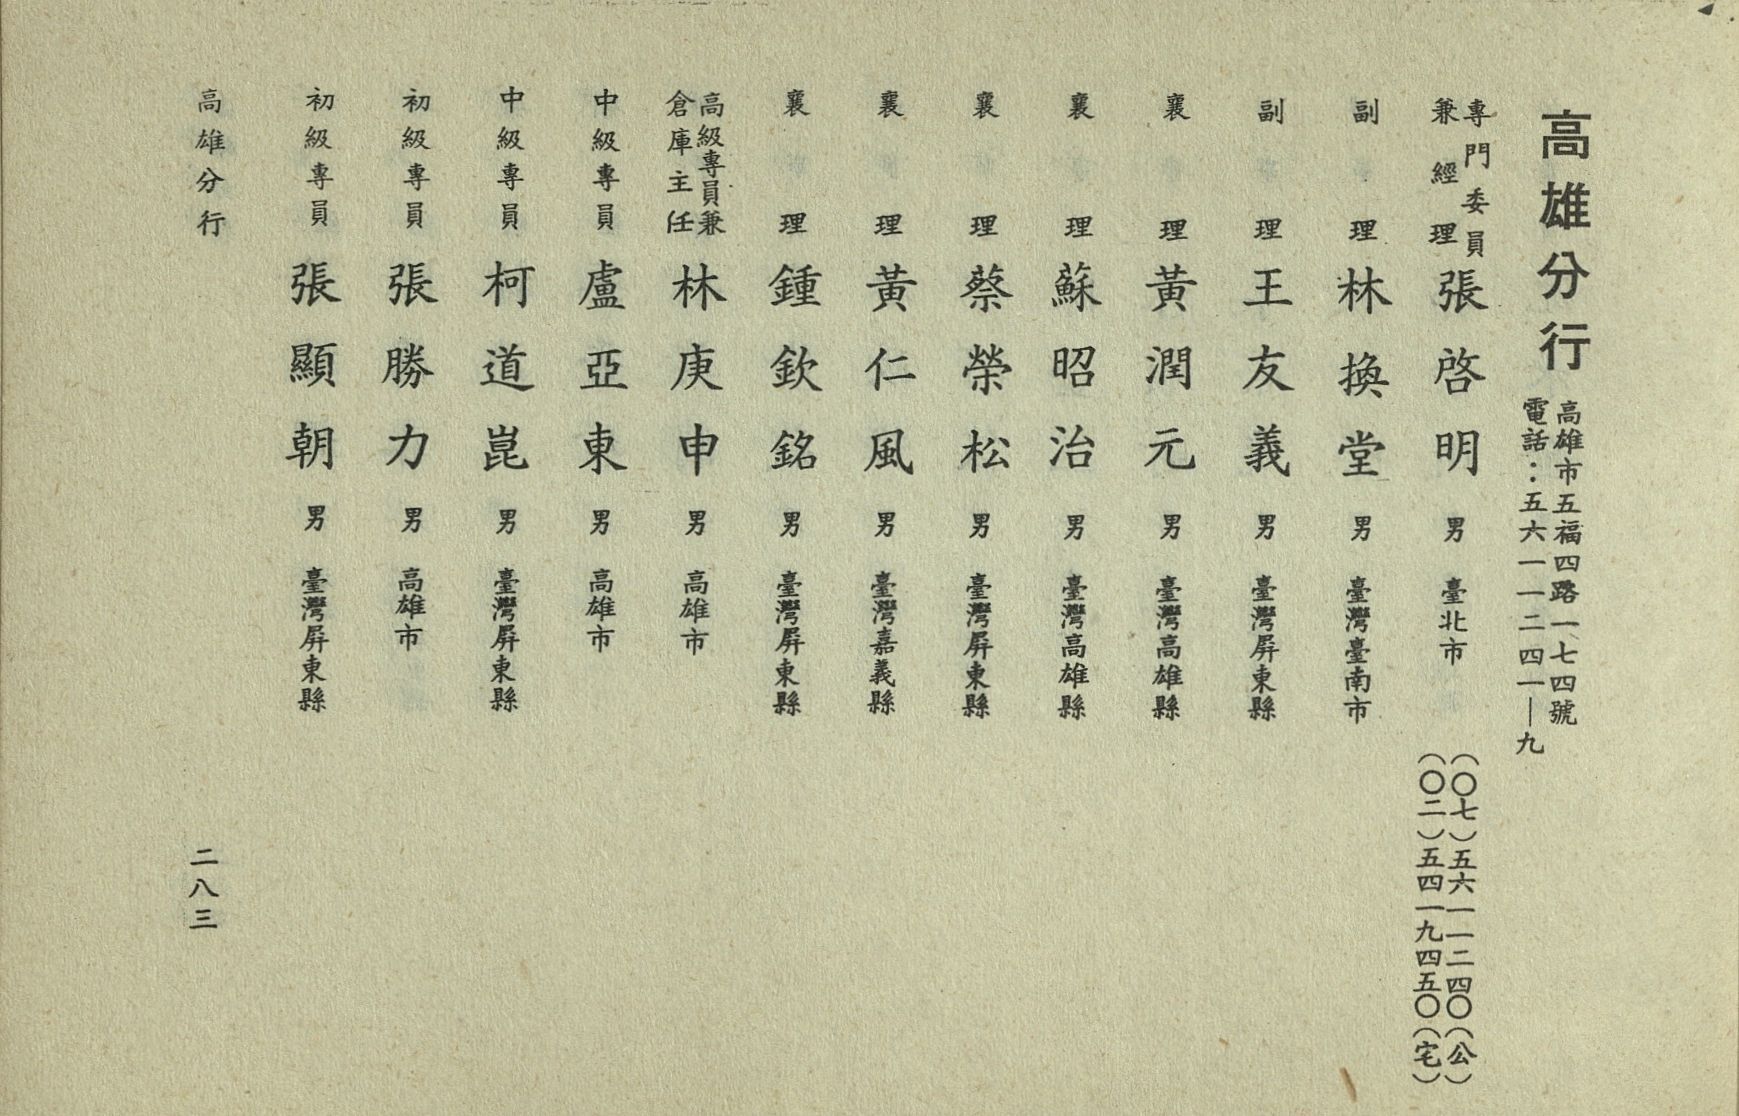 高雄分行
高雄市五福四路一七四號
電話：五六一一二四一—九
專門委員
兼經理 張啓明 男 臺北市
（〇七）五六一一二四〇（公）
（〇二）五四一九四五〇（宅）
副理 林換堂 男 臺灣臺南市
副理 王友義 男 臺灣屏東縣
襄理 黃潤元 男 臺灣高雄縣
襄理 蘇昭治 男 臺灣高雄縣
襄理 蔡榮松 男 臺灣屏東縣
襄理 黃仁風 男 臺灣嘉義縣
襄理 鍾欽銘 男 臺灣屏東縣
高級專員兼
倉庫主任 林庚申 男 高雄市
中級專員 盧亞東 男 高雄市
中級專員 柯道崑 男 臺灣屏東縣
初級專員 張勝力 男 高雄市
初級專員 張顯朝 男 臺灣屏東縣
高雄分行
二八三